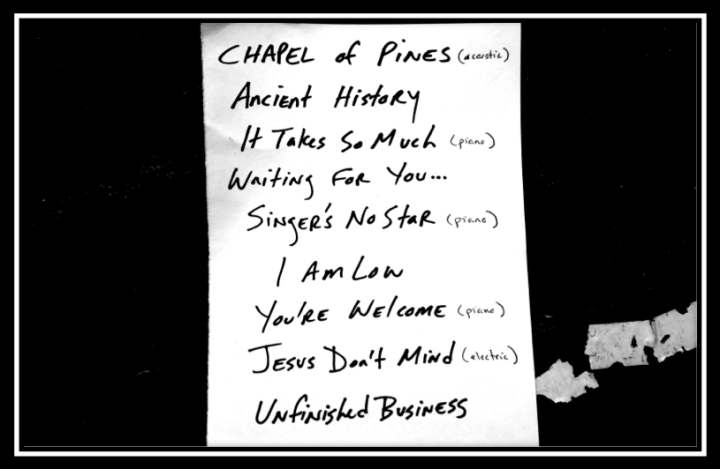 CHAPEL of PINES (acoustic)
Ancient History
It Takes So Much (piano)
Waiting For You...
Singer's No Star (piano)
I Am Low
You're Welcome (piano)
Jesus Don't Mind (electric)
Unfinished Business